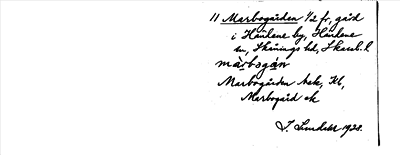 11 Marbogården 1/2 fr, gård
i Härlene by, Härlene
sn, Skånings hd, Skarab. l
màrbogán
Marbogården Aek, Kb,
Marbogård ek
J. Lundahl 1928.